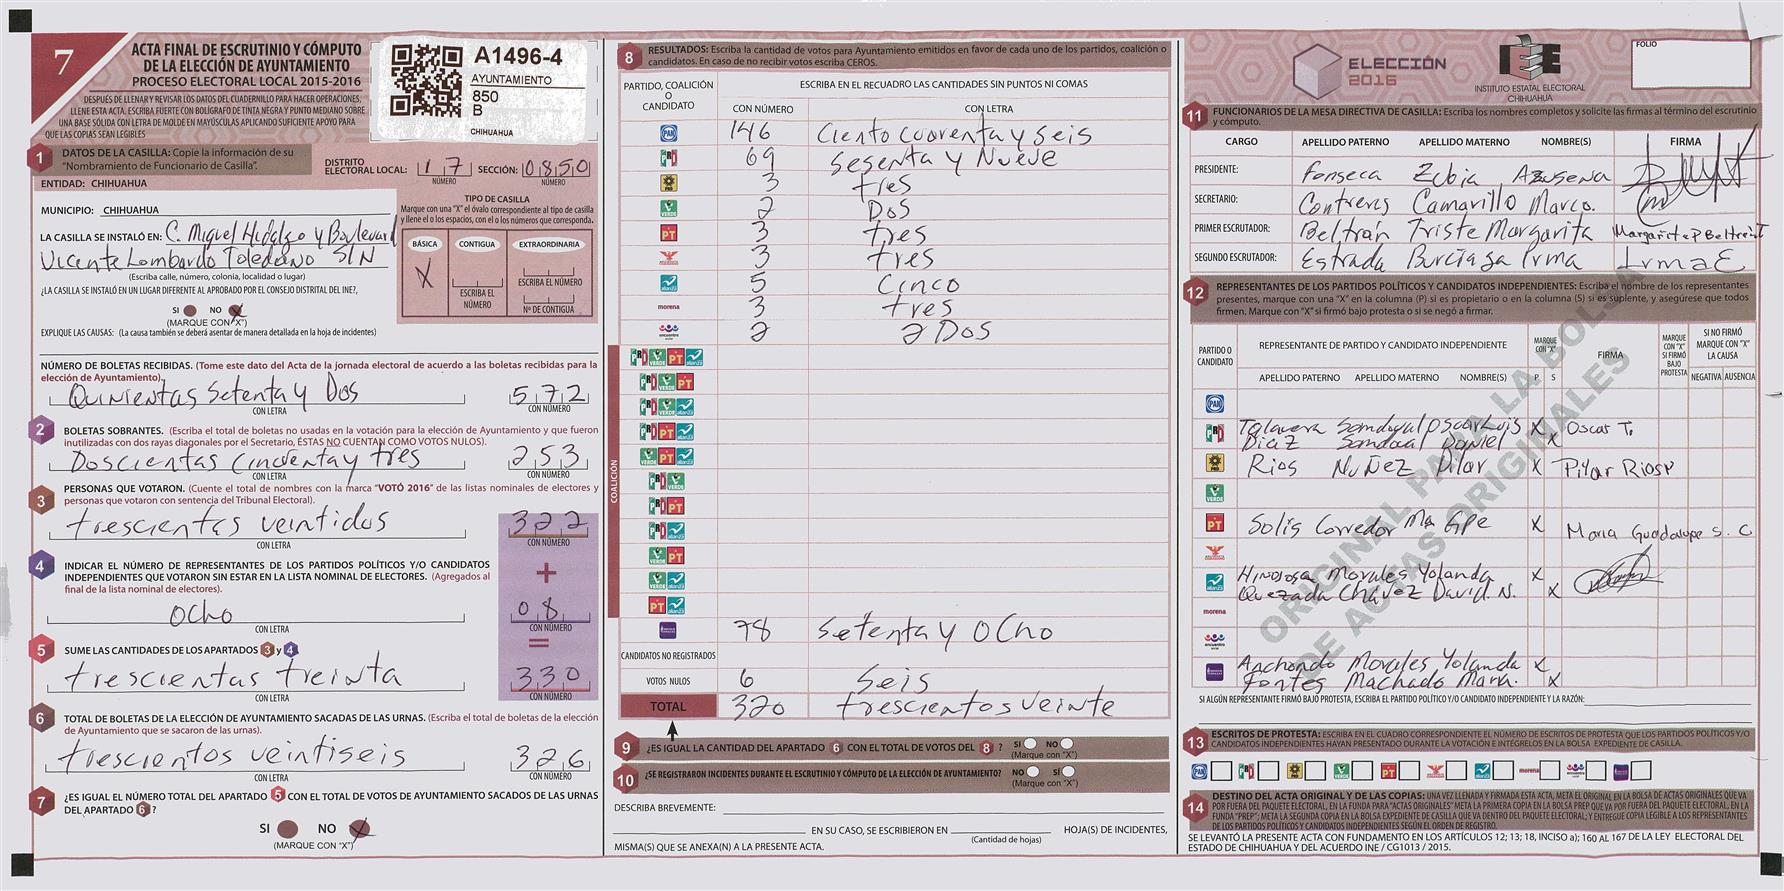 7
ACTA FINAL DE ESCRUTINIO Y CÓMPUTO
DE LA ELECCIÓN DE AYUNTAMIENTO
PROCESO ELECTORAL LOCAL 2015-2016
DESPUÉS DE LLENAR Y REVISAR LOS DATOS DEL CUADERNILLO PARA HACER OPERACIONES,
LLENE ESTA ACTA. ESCRIBA FUERTE CON BOLÍGRAFO DE TINTA NEGRA Y PUNTO MEDIANO SOBRE
UNA BASE SÓLIDA CON LETRA DE MOLDE EN MAYÚSCULAS APLICANDO SUFICIENTE APOYO PARA
QUE LAS COPIAS SEAN LEGIBLES
A1496-4
AYUNTAMIENTO
850
B
CHIHUAHUA
1 DATOS DE LA CASILLA: Copie la información de su
"Nombramiento de Funcionario de Casilla".
DISTRITO
ELECTORAL LOCAL: 17 SECCIÓN: 0850
NÚMERO NÚMERO
ENTIDAD: CHIHUAHUA
MUNICIPIO: CHIHUAHUA
LA CASILLA SE INSTALÓ EN: C. Miguel Hidalgo y Boulevard
Vicente Lombardo Toledano S/N
(Escriba calle, número, colonia, localidad o lugar)
¿LA CASILLA SE INSTALÓ EN UN LUGAR DIFERENTE AL APROBADO POR EL CONSEJO DISTRITAL DEL INE?,
SI NO X
(MARQUE CON "X")
EXPLIQUE LAS CAUSAS: (La causa también se deberá asentar de manera detallada en la hoja de incidentes)
TIPO DE CASILLA
Marque con una "X" el óvalo correspondiente al tipo de casilla
y llene el o los espacios, con el o los números que corresponda.
BÁSICA CONTIGUA EXTRAORDINARIA
X
ESCRIBA EL NÚMERO
ESCRIBA EL NÚMERO
Nº DE CONTIGUA
NÚMERO DE BOLETAS RECIBIDAS. (Tome este dato del Acta de la jornada electoral de acuerdo a las boletas recibidas para la
elección de Ayuntamiento).
Quinientas Setenta y Dos 572
CON LETRA CON NÚMERO
2 BOLETAS SOBRANTES. (Escriba el total de boletas no usadas en la votación para la elección de Ayuntamiento y que fueron
inutilizadas con dos rayas diagonales por el Secretario, ÉSTAS NO CUENTAN COMO VOTOS NULOS).
Doscientas Cincuenta y tres 253
CON LETRA CON NÚMERO
3 PERSONAS QUE VOTARON. (Cuente el total de nombres con la marca "VOTÓ 2016" de las listas nominales de electores y
personas que votaron con sentencia del Tribunal Electoral).
trescientas veintidos 322
CON LETRA CON NÚMERO
4 INDICAR EL NÚMERO DE REPRESENTANTES DE LOS PARTIDOS POLÍTICOS Y/O CANDIDATOS
INDEPENDIENTES QUE VOTARON SIN ESTAR EN LA LISTA NOMINAL DE ELECTORES. (Agregados al
final de la lista nominal de electores).
+
Ocho 08
CON LETRA CON NÚMERO
=
5 SUME LAS CANTIDADES DE LOS APARTADOS 3 y 4
trescientas treinta 330
CON LETRA CON NÚMERO
6 TOTAL DE BOLETAS DE LA ELECCIÓN DE AYUNTAMIENTO SACADAS DE LAS URNAS. (Escriba el total de boletas de la elección
de Ayuntamiento que se sacaron de las urnas).
trescientos veintiseis 326
CON LETRA CON NÚMERO
7 ¿ES IGUAL EL NÚMERO TOTAL DEL APARTADO 5 CON EL TOTAL DE VOTOS DE AYUNTAMIENTO SACADOS DE LAS URNAS
DEL APARTADO 6?
SI NO X
(MARQUE CON "X")
8 RESULTADOS: Escriba la cantidad de votos para Ayuntamiento emitidos en favor de cada uno de los partidos, coalición o
candidatos. En caso de no recibir votos escriba CEROS.
PARTIDO, COALICIÓN
O
CANDIDATO
ESCRIBA EN EL RECUADRO LAS CANTIDADES SIN PUNTOS NI COMAS
CON NÚMERO CON LETRA
PAN 146 Ciento cuarenta y seis
PRI 69 Sesenta y Nueve
PRD 3 tres
VERDE 2 Dos
PT 3 tres
3 tres
alianza 5 Cinco
morena 3 tres
encuentro social 2 2 Dos
COALICIÓN
78 Setenta y Ocho
CANDIDATOS NO REGISTRADOS
VOTOS NULOS 6 Seis
TOTAL 320 trescientos veinte
9 ¿ES IGUAL LA CANTIDAD DEL APARTADO 6 CON EL TOTAL DE VOTOS DEL 8? SI NO
(Marque con "X")
10 ¿SE REGISTRARON INCIDENTES DURANTE EL ESCRUTINIO Y CÓMPUTO DE LA ELECCIÓN DE AYUNTAMIENTO? NO SÍ
(Marque con "X")
DESCRIBA BREVEMENTE:
EN SU CASO, SE ESCRIBIERON EN HOJA(S) DE INCIDENTES,
(Cantidad de hojas)
MISMA(S) QUE SE ANEXA(N) A LA PRESENTE ACTA.
ELECCIÓN
2016
IEE
INSTITUTO ESTATAL ELECTORAL
CHIHUAHUA
FOLIO
11 FUNCIONARIOS DE LA MESA DIRECTIVA DE CASILLA: Escriba los nombres completos y solicite las firmas al término del escrutinio
y cómputo.
CARGO APELLIDO PATERNO APELLIDO MATERNO NOMBRE(S) FIRMA
PRESIDENTE: Fonseca Zubia Azusena
SECRETARIO: Contreras Camarillo Marco.
PRIMER ESCRUTADOR: Beltrán Triste Margarita
SEGUNDO ESCRUTADOR: Estrada Burciaga Irma Irma E
12 REPRESENTANTES DE LOS PARTIDOS POLÍTICOS Y CANDIDATOS INDEPENDIENTES: Escriba el nombre de los representantes
presentes, marque con una "X" en la columna (P) si es propietario o en la columna (S) si es suplente, y asegúrese que todos
firmen. Marque con "X" si firmó bajo protesta o si se negó a firmar.
PARTIDO O CANDIDATO
REPRESENTANTE DE PARTIDO Y CANDIDATO INDEPENDIENTE
MARQUE CON "X"
FIRMA
MARQUE CON "X" SI FIRMÓ BAJO PROTESTA
SI NO FIRMÓ MARQUE CON "X" LA CAUSA
APELLIDO PATERNO APELLIDO MATERNO NOMBRE(S) P S
NEGATIVA AUSENCIA
PAN
PRI Talavera Sandoval Oscar Luis X Oscar T.
Diaz Sandoval Daniel X
PRD Rios Nuñez Pilar X Pilar Rios
VERDE
PT Solis Corredor Ma Gpe X Maria Guadalupe S. C
alianza Hinojosa Morales Yolanda X
Quezada Chávez David N. X
morena
encuentro social
Anchondo Morales Yolanda X
Fontes Machado Maria. X
SI ALGÚN REPRESENTANTE FIRMÓ BAJO PROTESTA, ESCRIBA EL PARTIDO POLÍTICO Y/O CANDIDATO INDEPENDIENTE Y LA RAZÓN:
ORIGINAL PARA LA BOLSA
DE ACTAS ORIGINALES
13 ESCRITOS DE PROTESTA: ESCRIBA EN EL CUADRO CORRESPONDIENTE EL NÚMERO DE ESCRITOS DE PROTESTA QUE LOS PARTIDOS POLÍTICOS Y/O
CANDIDATOS INDEPENDIENTES HAYAN PRESENTADO DURANTE LA VOTACIÓN E INTÉGRELOS EN LA BOLSA EXPEDIENTE DE CASILLA.
14 DESTINO DEL ACTA ORIGINAL Y DE LAS COPIAS: UNA VEZ LLENADA Y FIRMADA ESTA ACTA, META EL ORIGINAL EN LA BOLSA DE ACTAS ORIGINALES QUE VA
POR FUERA DEL PAQUETE ELECTORAL, EN LA FUNDA PARA "ACTAS ORIGINALES" META LA PRIMERA COPIA EN LA BOLSA PREP QUE VA POR FUERA DEL PAQUETE ELECTORAL, EN LA
FUNDA "PREP"; META LA SEGUNDA COPIA EN LA BOLSA EXPEDIENTE DE CASILLA QUE VA DENTRO DEL PAQUETE ELECTORAL; Y ENTREGUE COPIA LEGIBLE A LOS REPRESENTANTES
DE LOS PARTIDOS POLÍTICOS Y CANDIDATOS INDEPENDIENTES SEGÚN EL ORDEN DE REGISTRO.
SE LEVANTÓ LA PRESENTE ACTA CON FUNDAMENTO EN LOS ARTÍCULOS 12; 13; 18, INCISO a); 160 AL 167 DE LA LEY ELECTORAL DEL
ESTADO DE CHIHUAHUA Y DEL ACUERDO INE / CG1013 / 2015.